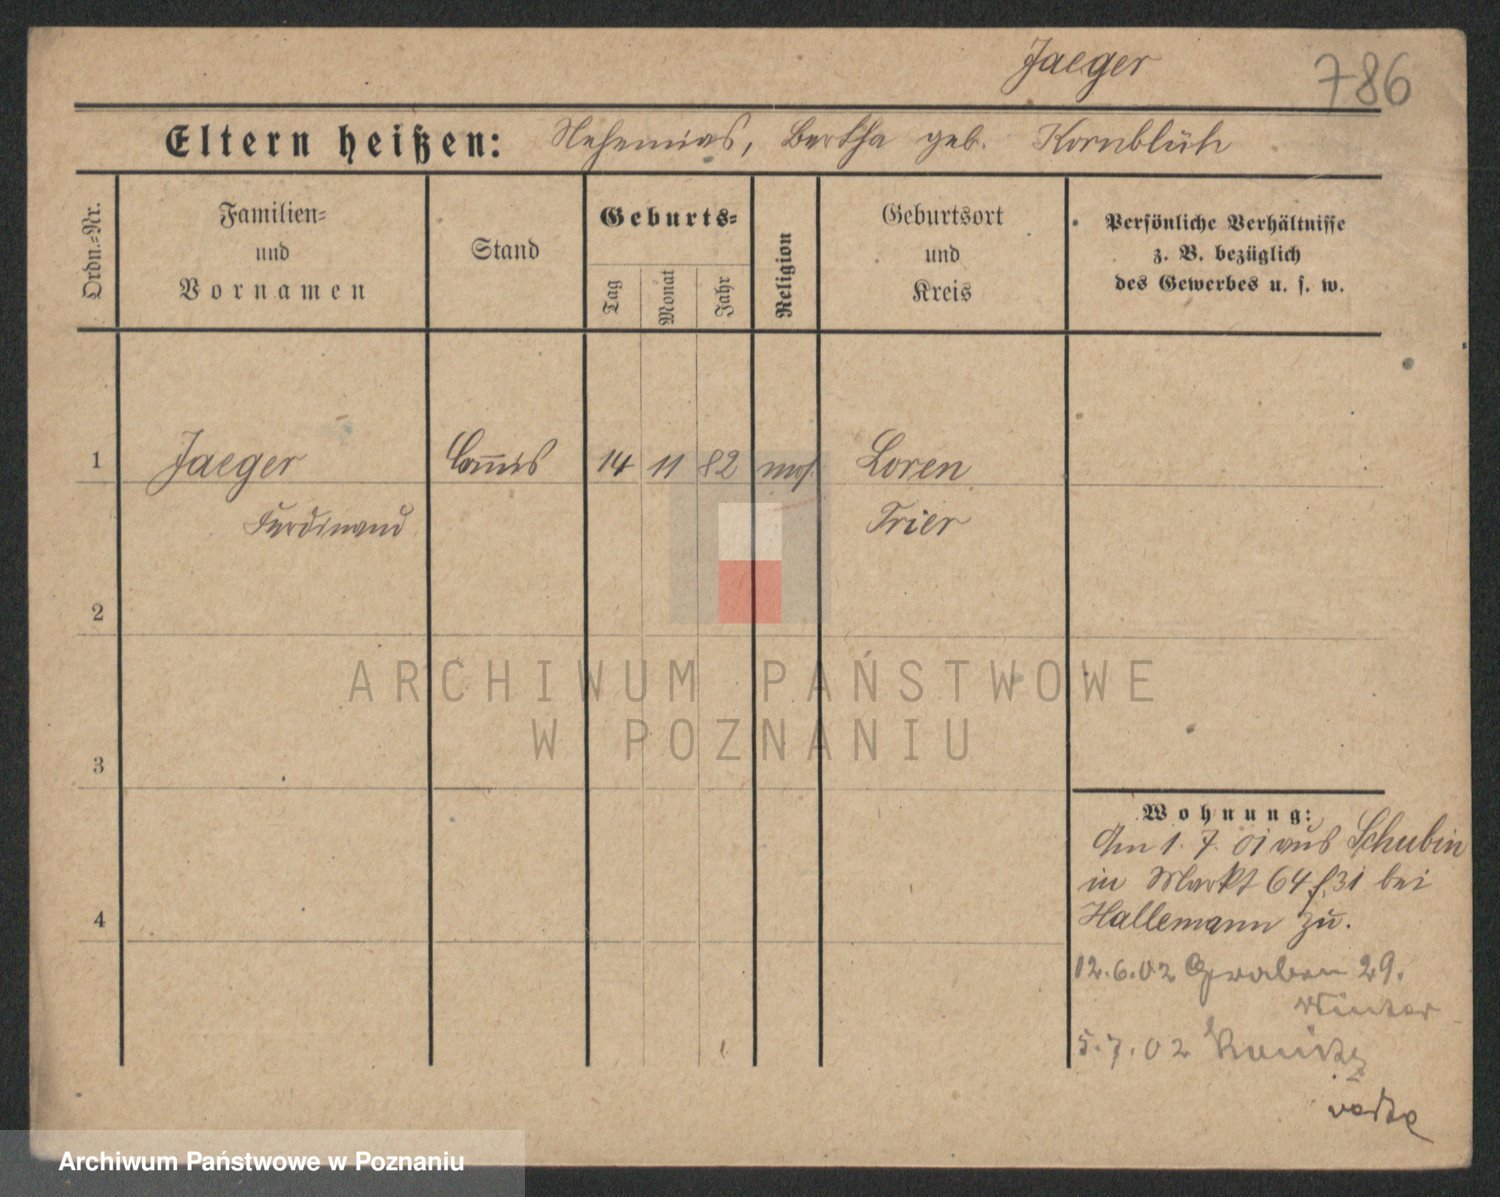 Jaeger
786
Eltern heißen: Nehemias, Bertha geb. Kornblüh
Ordn.-Nr.
Familien-
und
Vornamen
Stand
Geburts-
Tag
Monat
Jahr
Religion
Geburtsort
und
Kreis
Persönliche Verhältnisse
z. B. bezüglich
des Gewerbes u. s. w.
1 Jaeger Com̄is 14 11 82 mos. Loren
Ferdinand Trier
2
3
4
ARCHIWUM PAŃSTWOWE
W POZNANIU
Wohnung:
Am 1. 7. 01 aus Schubin
in Markt 64 f. 31 bei
Hallemann zu.
12.6.02 Graben 29.
Winter
5.7.02
Archiwum Państwowe w Poznaniu